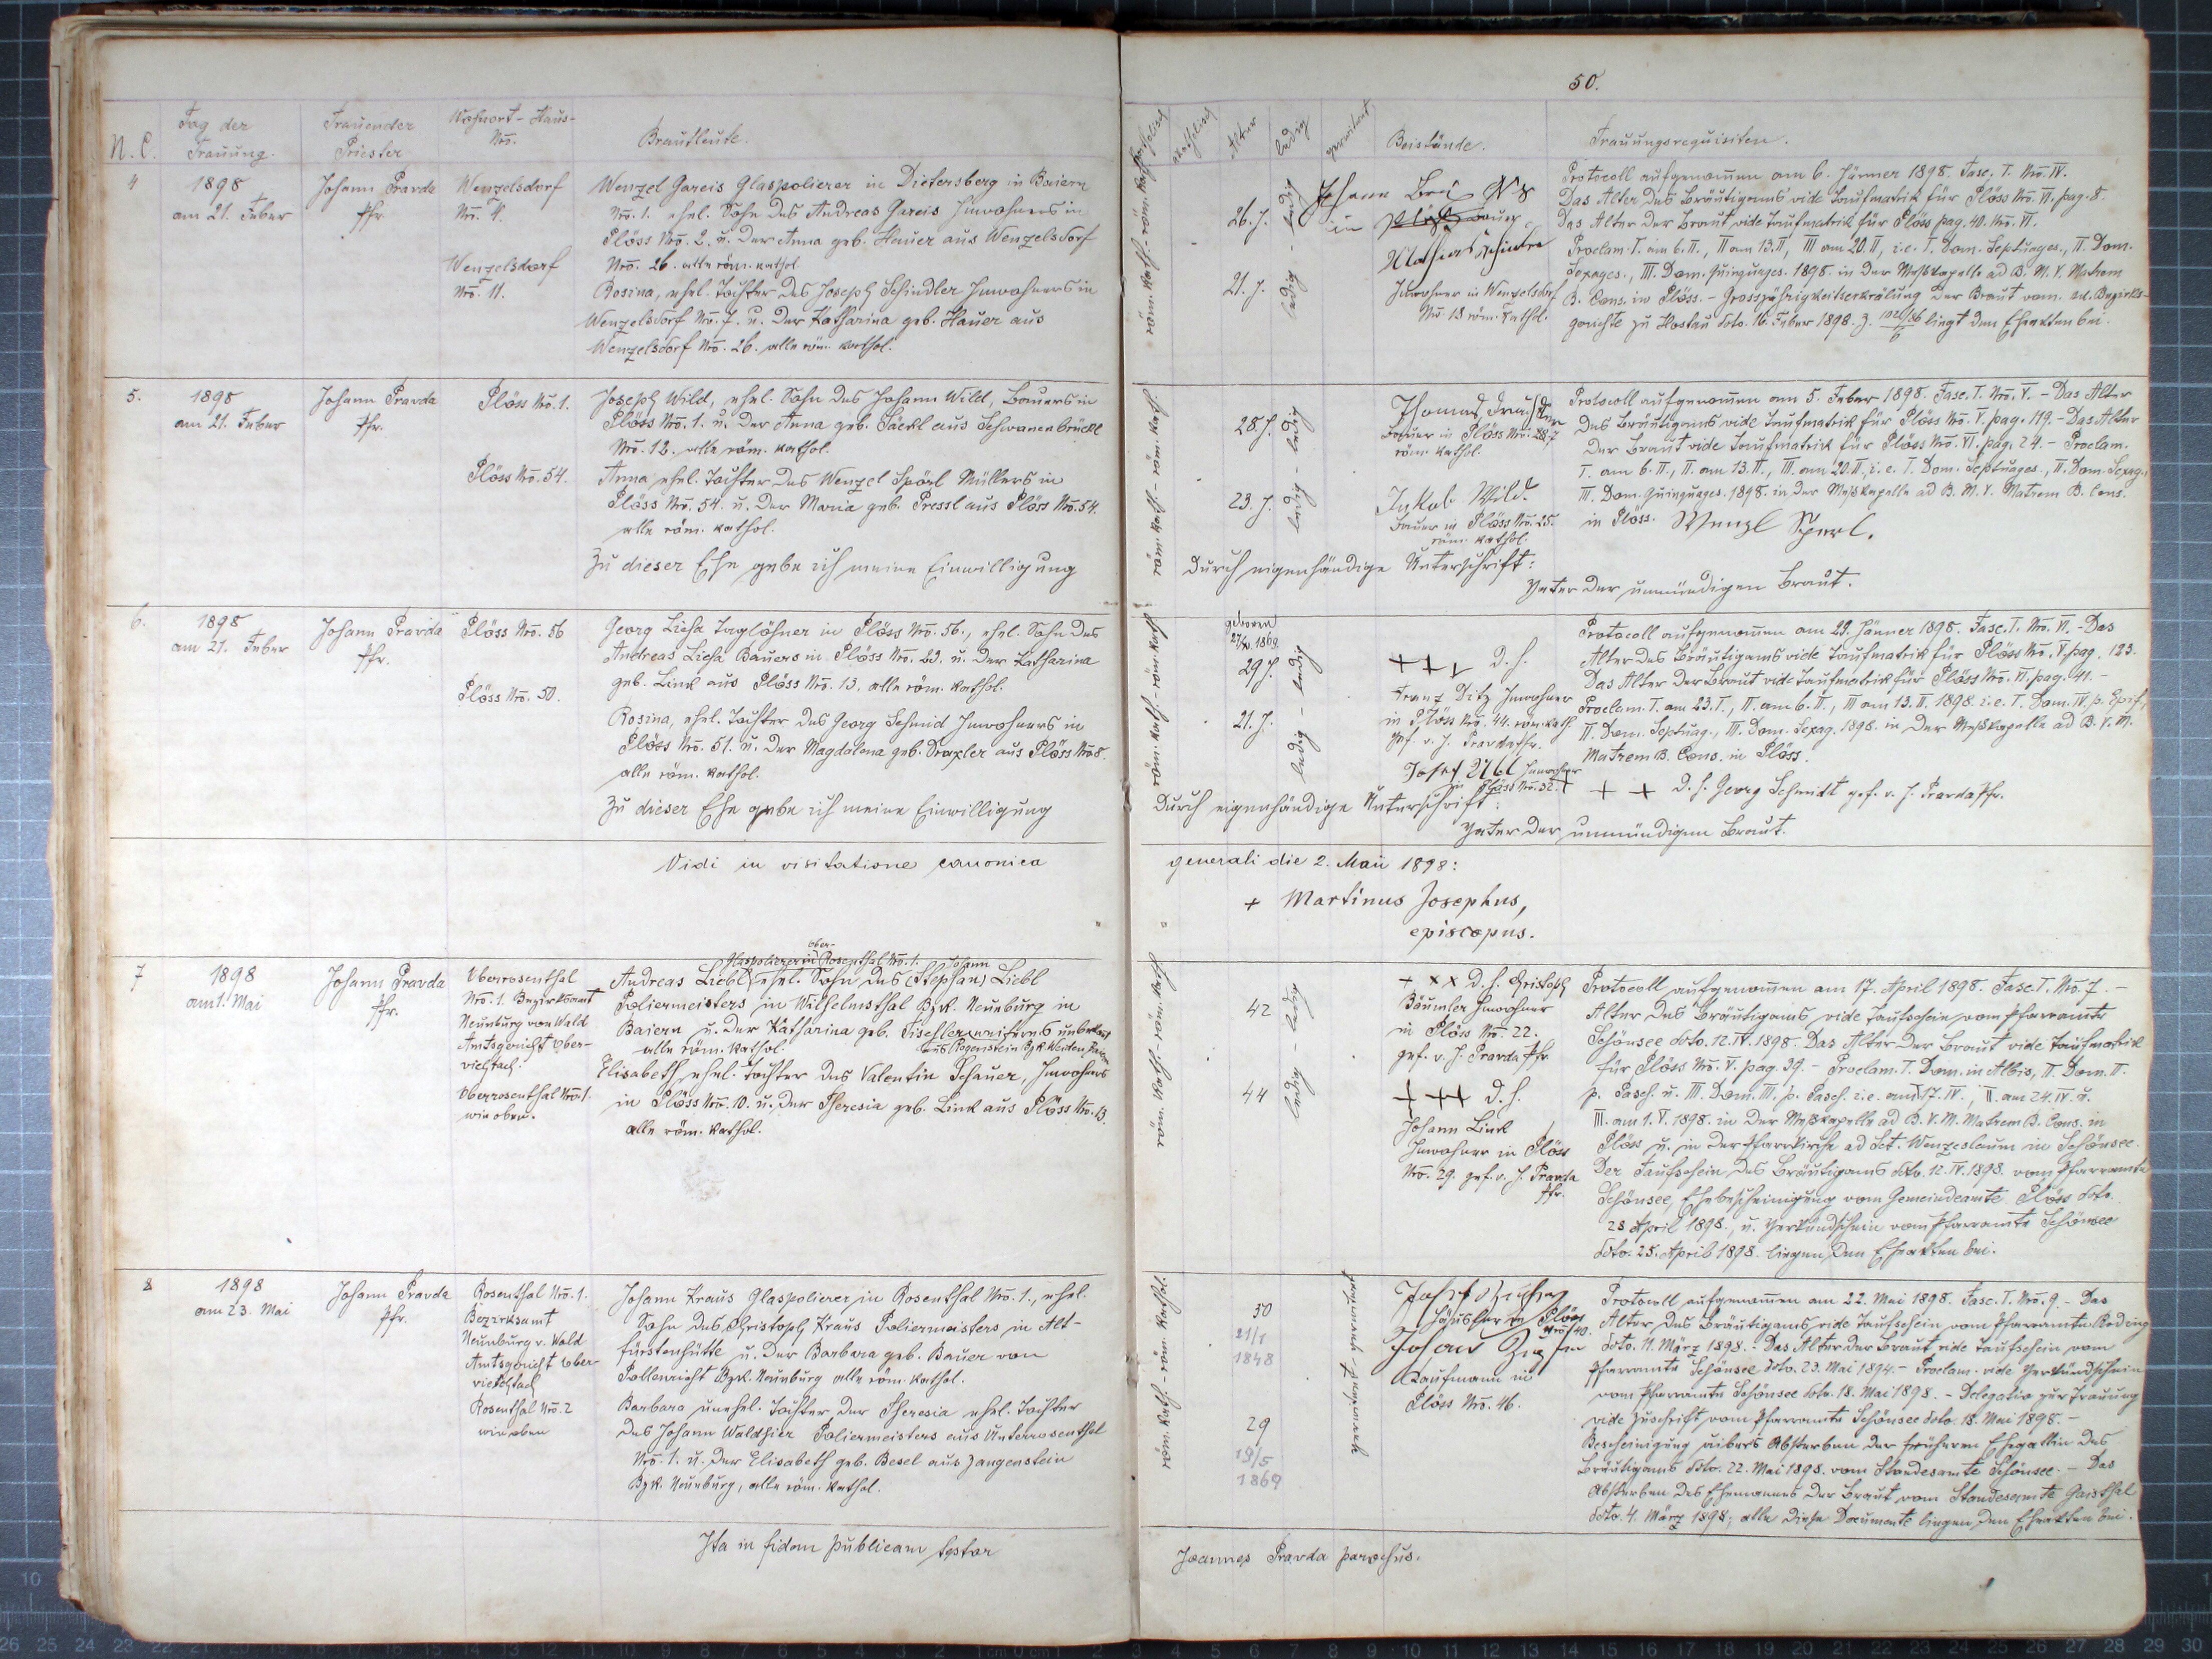 50.
N. C.
Tag der
Trauung.
Trauender
Priester
Wohnort-Haus-
Nro.
Brautleute.
4
1898
am 21. Feber
Johann Pravda
Pfr.
Wenzelsdorf
Nro. 4.
Wenzelsdorf
Nro. 11.
Wenzel Gareis Glaspolierer in Dietersberg in Baiern
Nro. 1. ehel. Sohn des Andreas Gareis Inwohners in
Plöss Nro. 2. u. der Anna geb. Hauer aus Wenzelsdorf
Nro. 26. alle röm. kathol.
Rosina, ehel. Tochter des Joseph Schindler Inwohners in
Wenzelsdorf Nro. 7. u. der Katharina geb. Hauer aus
Wenzelsdorf Nro. 26. alle röm. kathol.
5.
1898
am 21. Feber
Johann Pravda
Pfr.
Plöss Nro. 1.
Plöss Nro. 54.
Joseph Wild, ehel. Sohn des Johann Wild, Bauers in
Plöss Nro. 1. u. der Anna geb. Säckl aus Schwanenbrückl
Nro. 12. alle röm. kathol.
Anna ehel. Tochter des Wenzel Spörl Müllers in
Plöss Nro. 54. u. der Maria geb. Pressl aus Plöss Nro. 54.
alle röm. kathol.
Zu dieser Ehe gebe ich meine Einwilligung
6.
1898
am 21. Feber
Johann Pravda
Pfr.
Plöss Nro. 56
Plöss Nro. 50.
Georg Lieha Taglöhner in Plöss Nro. 56., ehel. Sohn des
Andreas Lieha Bauers in Plöss Nro. 23. u. der Katharina
geb. Link aus Plöss Nro. 13. alle röm. kathol.
Rosina, ehel. Tochter des Georg Schmid Inwohners in
Plöss Nro. 51. u. der Magdalena geb. Draxler aus Plöss Nro. 8.
alle röm. kathol.
Zu dieser Ehe gebe ich meine Einwilligung
Vidi in visitatione canonica
7
1898
am 1. Mai
Johann Pravda
Pfr.
Oberrosenthal
Nro. 1. Bezirksamt
Neunburg vorm Wald
Amtsgericht Ober-
viechtach.
Oberrosenthal Nro. 1.
wie oben.
ober-
Glaspolierer in Rosenthal Nro. 1.
Johann
Andreas Liebl, ehel. Sohn des (Stephan) Liebl
Poliermeisters in Wilhelmsthal Bzk. Neunburg in
Baiern u. der Katharina geb. Tischler weiteres unbekannt
aus Rogenstein Bzk Weiden Baiern
alle röm. kathol.
Elisabeth, ehel. Tochter des Valentin Schauer, Inwohners
in Plöss Nro. 10. u. der Theresia geb. Link aus Plöss Nro. 13.
alle röm. kathol.
8
1898
am 23. Mai
Johann Pravda
Pfr.
Rosenthal Nro. 1.
Bezirksamt
Neunburg v. Wald
Amtsgericht Ober-
viechtach
Rosenthal Nro. 2
wie oben
Johann Kraus Glaspolierer in Rosenthal Nro. 1., ehel.
Sohn des Christoph Kraus Poliermeisters in Alt-
fürstenhütte u. der Barbara geb. Bauer von
Pollenricht Bzk. Neunburg alle röm. kathol.
Barbara unehel. Tochter der Theresia ehel. Tochter
des Johann Waldhier Poliermeisters aus Unterrosenthal
Nro. 1. u. der Elisabeth geb. Besel aus Zangenstein
Bzk. Neunburg, alle röm. kathol.
Ita in fidem publicam testor
katholisch
akatholisch
Alter
ledig
verwitwet
Beistände.
Trauungsrequisiten.
röm. kath. röm. kathol.
26. J.
ledig - ledig
21. J.
Johann
in
Mathias Schindler
Inwohner in Wenzelsdorf
Nro. 18 röm. kathol.
Protocoll aufgenommen am 6. Jänner 1898. Fasc. T. Nro. IV.
Das Alter des Bräutigams vide Taufmatrik für Plöss Nro. VI. pag. 8.
Das Alter der Braut vide Taufmatrik für Plöss pag. 40. Nro. VI.
Proclam. I. am 6. II., II am 13. II., III am 20. II, i. e. I. Dom. Septuages., II. Dom.
Sexages., III. Dom. Quinquages. 1898. in der Messkapelle ad B. M. V. Matrem
B. Cons. in Plöss. - Grossjährigkeitserklärung der Braut vom Bezirks-
gerichte zu Hostau dto. 16. Feber 1898. Z. liegt den Eheakten bei.
röm. kath. - röm. kathol.
28. J.
ledig - ledig
23. J.
Thomas
Bauer in Plöss Nro. 27
röm. kathol.
Jakob Wild.
Bauer in Plöss Nro. 25.
röm. kathol.
Protocoll aufgenommen am 5. Feber 1898. Fasc. T. Nro. V. - Das Alter
des Bräutigams vide Taufmatrik für Plöss Nro. V. pag. 119. - Das Alter
der Braut vide Taufmatrik für Plöss Nro. VI. pag. 24. - Proclam.
I. am 6. II., II. am 13. II., III. am 20. II, i. e. I. Dom. Septuages., II. Dom. Sexag.,
III. Dom. Quinquages. 1898. in der Messkapelle ad B. M. V. Matrem B. Cons.
in Plöss. Wenzl Sperl.
durch eigenhändige Unterschrift:
Vater der unmündigen Braut.
röm. kath. röm. kathol.
geboren
27/XI. 1869.
29 J.
ledig - ledig
21. J.
+++ d. h.
Franz Ditz Inwohner
in Plöss Nro. 44. röm. kath.
gef. v. J. Pravda Pfr.
Josef Inwohner
in Plöss Nro. 32.
Protocoll aufgenommen am 29. Jänner 1898. Fasc. T. Nro. VI. - Das
Alter des Bräutigams vide Taufmatrik für Plöss Nro. V. pag. 123.
Das Alter der Braut vide Taufmatrik für Plöss Nro. VI. pag. 41. -
Proclam. I. am 23. I., II. am 6. II., III am 13. II. 1898. i. e. I. Dom. IV. p. Epif.,
II. Dom. Septuag., III. Dom. Sexag. 1898. in der Messkapelle ad B. V. M.
Matrem B. Cons. in Plöss.
+ + + d. h. Georg Schmidt gef. v. J. Pravda Pfr.
durch eigenhändige Unterschrift:
Vater der unmündigen Braut.
generali die 2. Maii 1898:
+ Martinus Josephus,
episcopus.
röm. kath. - röm. kathol.
42
ledig - ledig
44
+ x x d. h. Christoph
Bäumler Inwohner
in Plöss Nro. 22.
gef. v. J. Pravda Pfr.
+++ d. h.
Johann Link
Inwohner in Plöss
Nro. 29. gef. v. J. Pravda
Pfr.
Protocoll aufgenommen am 17. April 1898. Fasc. T. Nro. 7. -
Alter des Bräutigams vide Taufschein vom Pfarramte
Schönsee dto. 12. IV. 1898. Das Alter der Braut vide Taufmatrik
für Plöss Nro. V. pag. 39. - Proclam. I. Dom. in Albis, II. Dom. II.
p. Pasch. u. III. Dom. III. p. Pasch. i. e. am I 17. IV., II. am 24. IV. u.
III. am 1. V. 1898. in der Messkapelle ad B. V. M. Matrem B. Cons. in
Plöss u. in der Pfarrkirche ad Sct. Wenzeslaum in Schönsee.
Der Taufschein des Bräutigams dto. 12. IV. 1898. vom Pfarramte
Schönsee, Ehebescheinigung vom Gemeindeamte Plöss dto.
28 April 1898, u. Verkündschein vom Pfarramte Schönsee
dto. 25. April 1898. liegen den Eheakten bei.
röm. kath. - röm. kathol.
50
21/1
1848
29
19/5
1869
verwitwet
verwitwet
Häusler in Plöss
Nro. 40.
Johann
Kaufmann in
Plöss Nro. 46.
Protocoll aufgenommen am 22. Mai 1898. Fasc. T. Nro. 9. - Das
Alter des Bräutigams vide Taufschein vom Pfarramte Roding
dto. 11. März 1898. - Das Alter der Braut vide Taufschein vom
Pfarramte Schönsee dto. 23. Mai 1894. - Proclam. vide Verkündschein
vom Pfarramte Schönsee dto. 18. Mai 1898. - Delegatio zur Trauung
vide Zuschrift vom Pfarramte Schönsee dto. 18. Mai 1898. -
Bescheinigung übers Absterben der früheren Ehegattin des
Bräutigams dto. 22. Mai 1898. vom Standesamte Schönsee. - Das
Absterben des Ehemannes der Braut vom Standesamte Gaisthal
dto. 4. März 1898; alle diese Documente liegen den Eheakten bei.
Joannes Pravda parochus.